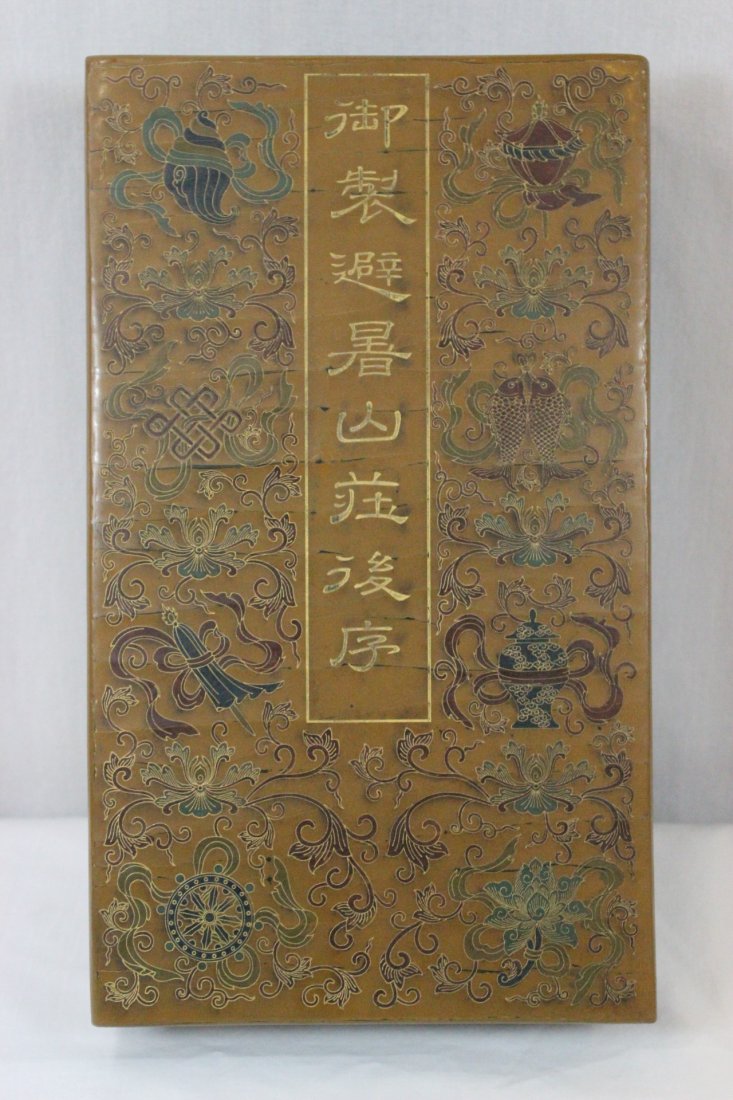 御製避暑山莊後序